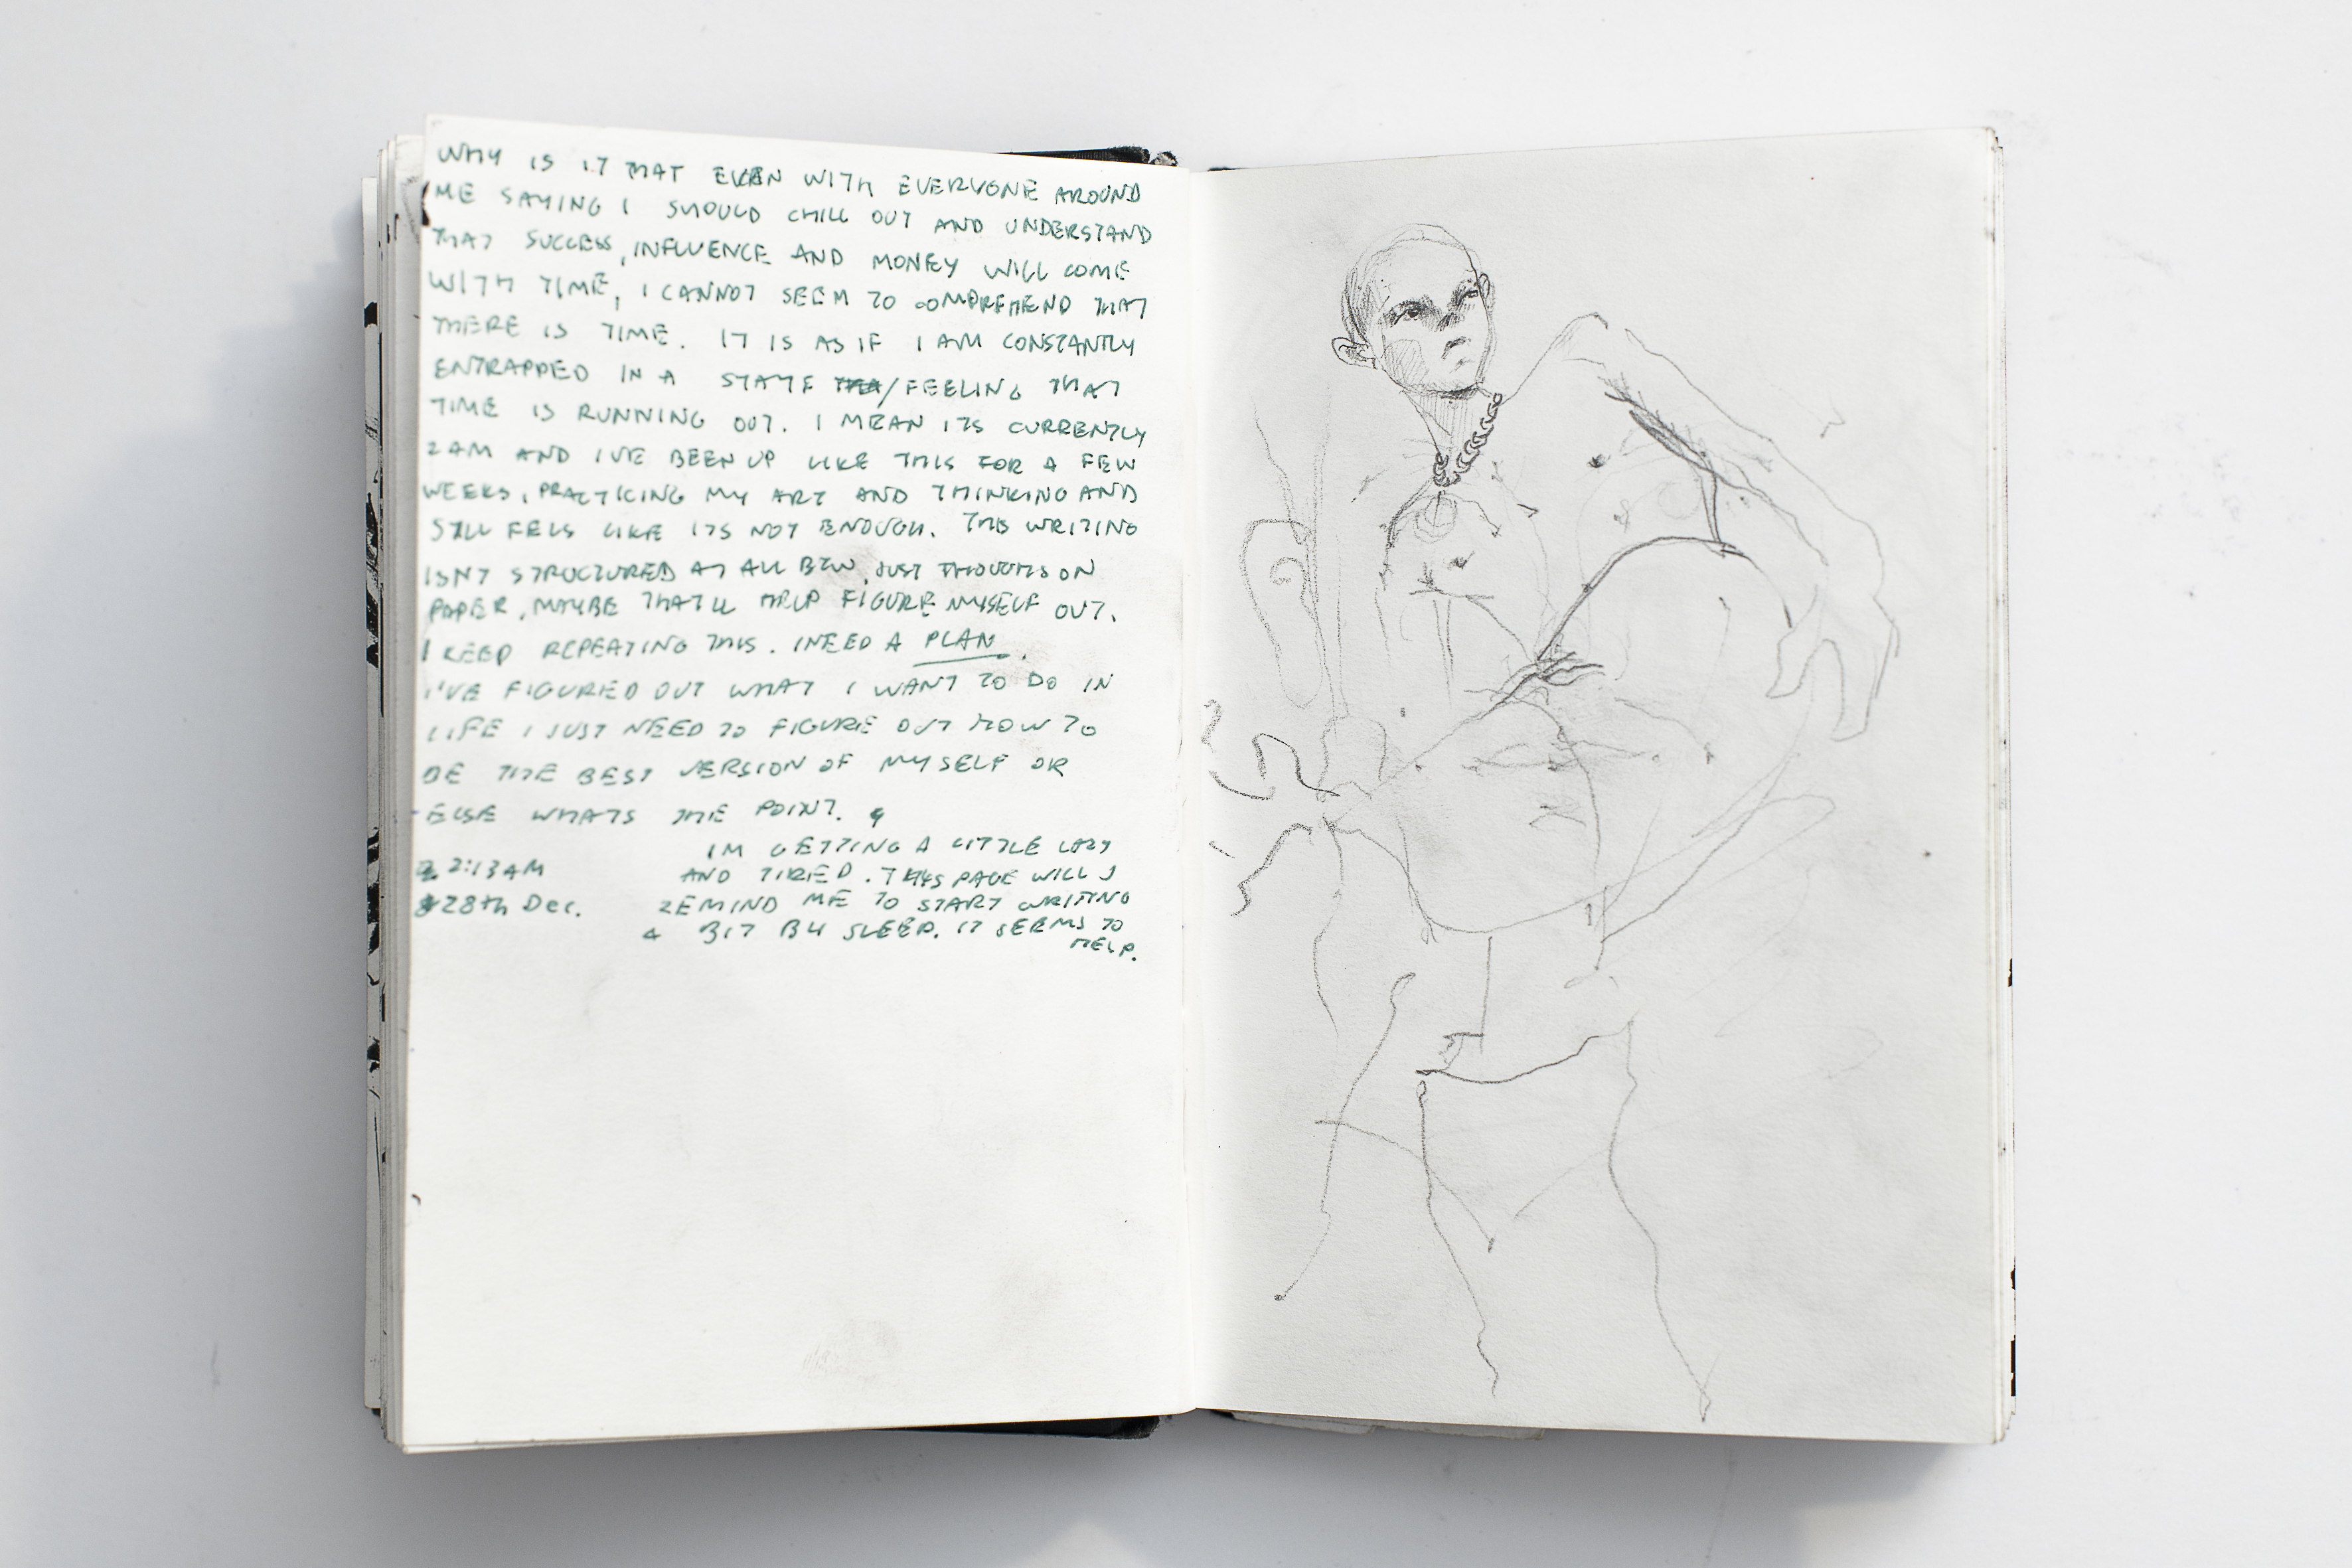 WHY IS IT THAT EVEN WITH EVERYONE AROUND
ME SAYING I SHOULD CHILL OUT AND UNDERSTAND
THAT SUCCESS, INFLUENCE AND MONEY WILL COME
WITH TIME, I CANNOT SEEM TO COMPREHEND THAT
THERE IS TIME. IT IS AS IF I AM CONSTANTLY
ENTRAPPED IN A STATE /FEELING THAT
TIME IS RUNNING OUT. I MEAN ITS CURRENTLY
2AM AND IVE BEEN UP LIKE THIS FOR A FEW
WEEKS, PRACTICING MY ART AND THINKING AND
STILL FEELS LIKE ITS NOT ENOUGH. THIS WRITING
ISNT STRUCTURED AT ALL BTW, JUST THOUGHTS ON
PAPER, MAYBE THAT'LL HELP FIGURE MYSELF OUT.
I KEEP REPEATING THIS. I NEED A PLAN.
I'VE FIGURED OUT WHAT I WANT TO DO IN
LIFE I JUST NEED TO FIGURE OUT HOW TO
BE THE BEST VERSION OF MYSELF OR
ELSE WHATS THE POINT.
IM GETTING A LITTLE LAZY
AND TIRED. THIS PAGE WILL
REMIND ME TO START WRITING
A BIT B4 SLEEP. IT SEEMS TO
HELP.
2:13AM
28th Dec.